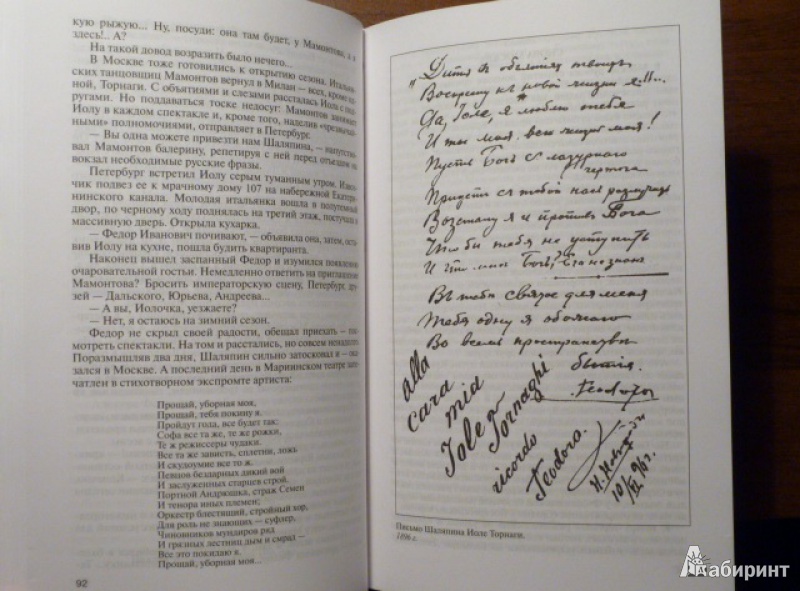 кую рыжую... Ну, посуди: она там будет, у Мамонтова, а я
здесь!.. А?
На такой довод возразить было нечего...
В Москве тоже готовились к открытию сезона. Итальян-
ских танцовщиц Мамонтов вернул в Милан — всех, кроме од-
ной, Торнаги. С объятиями и слезами рассталась Иола с под-
ругами. Но поддаваться тоске недосуг: Мамонтов занимает
Иолу в каждом спектакле и, кроме того, наделив «чрезвычай-
ными» полномочиями, отправляет в Петербург.
— Вы одна можете привезти нам Шаляпина, — напутство-
вал Мамонтов балерину, репетируя с ней перед отъездом на
вокзал необходимые русские фразы.
Петербург встретил Иолу серым туманным утром. Извоз-
чик подвез ее к мрачному дому 107 на набережной Екатери-
нинского канала. Молодая итальянка вошла в полутемный
двор, по черному ходу поднялась на третий этаж, постучала в
массивную дверь. Открыла кухарка.
— Федор Иванович почивают, — объявила она, затем, оста-
вив Иолу на кухне, пошла будить квартиранта.
Наконец вышел заспанный Федор и изумился появлению
очаровательной гостьи. Немедленно ответить на приглашение
Мамонтова? Бросить императорскую сцену, Петербург, дру-
зей — Дальского, Юрьева, Андреева...
— А вы, Иолочка, уезжаете?
— Нет, я остаюсь на зимний сезон.
Федор не скрыл своей радости, обещал приехать —
смотреть спектакли. На том и расстались, но совсем ненадолго.
Поразмышляв два дня, Шаляпин сильно затосковал и — ока-
зался в Москве. А последний день в Мариинском театре запе-
чатлен в стихотворном экспромте артиста:
Прощай, уборная моя,
Прощай, тебя покину я.
Пройдут года, все будет так:
Софа все та же, те же рожки,
Те ж режиссеры чудаки.
Все та же зависть, сплетни, ложь
И скудоумие все то ж.
Певцов бездарных дикий вой
И заслуженных старцев строй.
Портной Андрюшка, страж Семен
И тенора иных племен;
Оркестр блестящий, стройный хор,
Для роль не знающих — суфлер,
Чиновников мундиров ряд
И грязных лестниц дым и смрад —
Все это покидаю я.
Прощай, уборная моя...
92
„Дитя въ объятьяхъ твоихъ
Воскресну къ новой жизни я!!...
Да, Іоле, я люблю тебя
И ты моя, весь миръ моя!
Пустъ Богъ съ лазурнаго
чертога
Придетъ съ тобой насъ разлучать
Возстану я и противъ Бога
Чтобы тебя не уступить
И что мнѣ Богъ? Его не знаю
Въ тебѣ святое для меня
Тебя одну я обожаю
Во всемъ пространствѣ
бытья.
Теодоръ
alla
cara
mia
Iole
Tornaghi
ricordo
Teodoro.
10/XI 96 г.
Письмо Шаляпина Иоле Торнаги.
1896 г.
Лабиринт